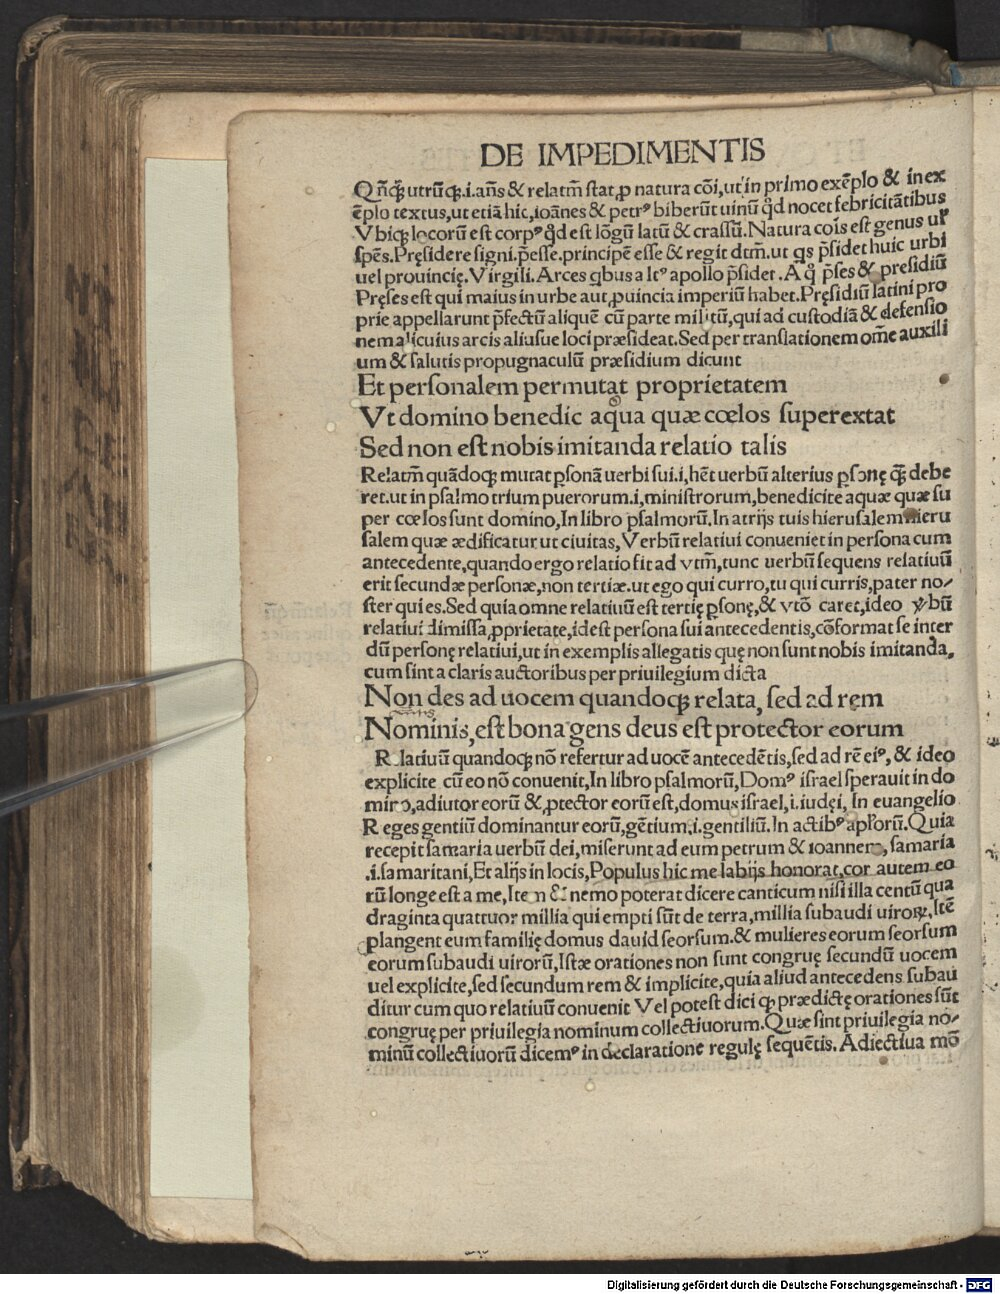 DE IMPEDIMENTIS
Qñcꝗ utrūꝗ.i.añs & relatm̄ stat, ꝓ natura cōi, ut in primo exēplo & in ex
ēplo textus, ut etiā hic, ioānes & petrꝰ biberūt uinū qd̄ nocet febricitātibus
Vbiqꝫ locorū est corpꝰ qd̄ est lōgū latū & crassū. Natura cois est genus ul'
spēs. Pręsidere signi. p̄esse. principē esse & regit dtm̄. ut qs p̄sidet huic urbi
uel prouincię. Virgili. Arces qbus altꝰ apollo p̄sidet. A q̄ p̄ses & presidiū
Pręses est qui maius in urbe aut ꝓuincia imperiū habet. Pręsidiū latini pro
prie appellarunt p̄fectū aliquē cū parte militū, qui ad custodiā & defensio
nem alicuius arcis aliusue loci præsideat. Sed per translationem om̄e auxili
um & salutis propugnaculū præsidium dicunt
Et personalem permutat proprietatem
Vt domino benedic aqua quæ cœlos superextat
Sed non est nobis imitanda relatio talis
Relatm̄ quādoqꝫ mutat ꝑsonā uerbi sui.i, hēt uerbū alterius ꝑsonę qꝫ debe
ret. ut in psalmo trium puerorum.i, ministrorum, benedicite aquæ quæ su
per cœlos sunt domino, In libro psalmorū. In atrijs tuis hierusalem hieru
salem quæ ædificatur ut ciuitas, Verbū relatiui conueniet in persona cum
antecedente, quando ergo relatio fit ad vtm̄, tunc uerbū sequens relatiuū
erit secundæ personæ, non tertiæ. ut ego qui curro, tu qui curris, pater no/
ster qui es. Sed quia omne relatiuū est tertię ꝑsonę, & vtō caret, ideo v̄bū
relatiui dimissa, ꝓprietate, idest persona sui antecedentis, cōformat se inter
dū personę relatiui, ut in exemplis allegatis quę non sunt nobis imitanda,
cum sint a claris auctoribus per priuilegium dicta
Non des ad uocem quandoqꝫ relata, sed ad rem
Nominis, est bona gens deus est protector eorum
Relatiuū quandoqꝫ nō refertur ad uocē antecedētis, sed ad rē eiꝰ, & ideo
explicite cū eo nō conuenit, In libro psalmorū, Domꝰ israel sperauit in do
mino, adiutor eorū & ꝓtector eorū est, domus israel, i. iudęi, In euangelio
Reges gentiū dominantur eorū, gētium, i. gentiliū. In actibꝰ apl'orū. Quia
recepit samaria uerbū dei, miserunt ad eum petrum & ioannem, samaria
.i. samaritani, Et alijs in locis, Populus hic me labijs honorat, cor autem eo
rū longe est a me, Item & nemo poterat dicere canticum nisi illa centū qua
draginta quattuor millia qui empti sūt de terra, millia subaudi uiroꝝ, Itē
plangent eum familię domus dauid seorsum. & mulieres eorum seorsum
eorum subaudi uirorū, Istæ orationes non sunt congruę secundū uocem
uel explicite, sed secundum rem & implicite, quia aliud antecedens subau
ditur cum quo relatiuū conuenit Vel potest dici ꝙ prædictę orationes sūt
congruę per priuilegia nominum collectiuorum. Quæ sint priuilegia no/
minū collectiuorū dicemꝰ in declaratione regulę sequētis. Adiectiua mō
Digitalisierung gefördert durch die Deutsche Forschungsgemeinschaft - DFG